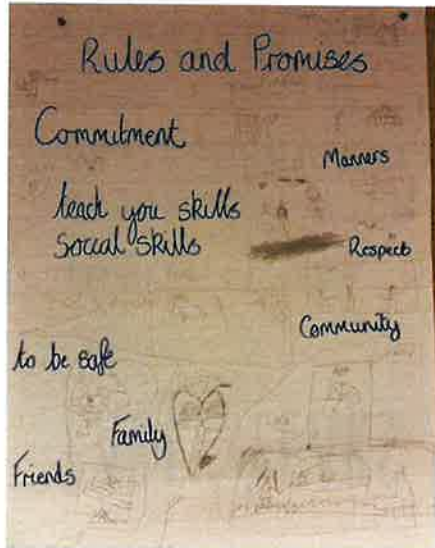 Rules and Promises
Commitment
Manners
teach you skills
social skills
Respect
Community
to be safe
Family
Friends